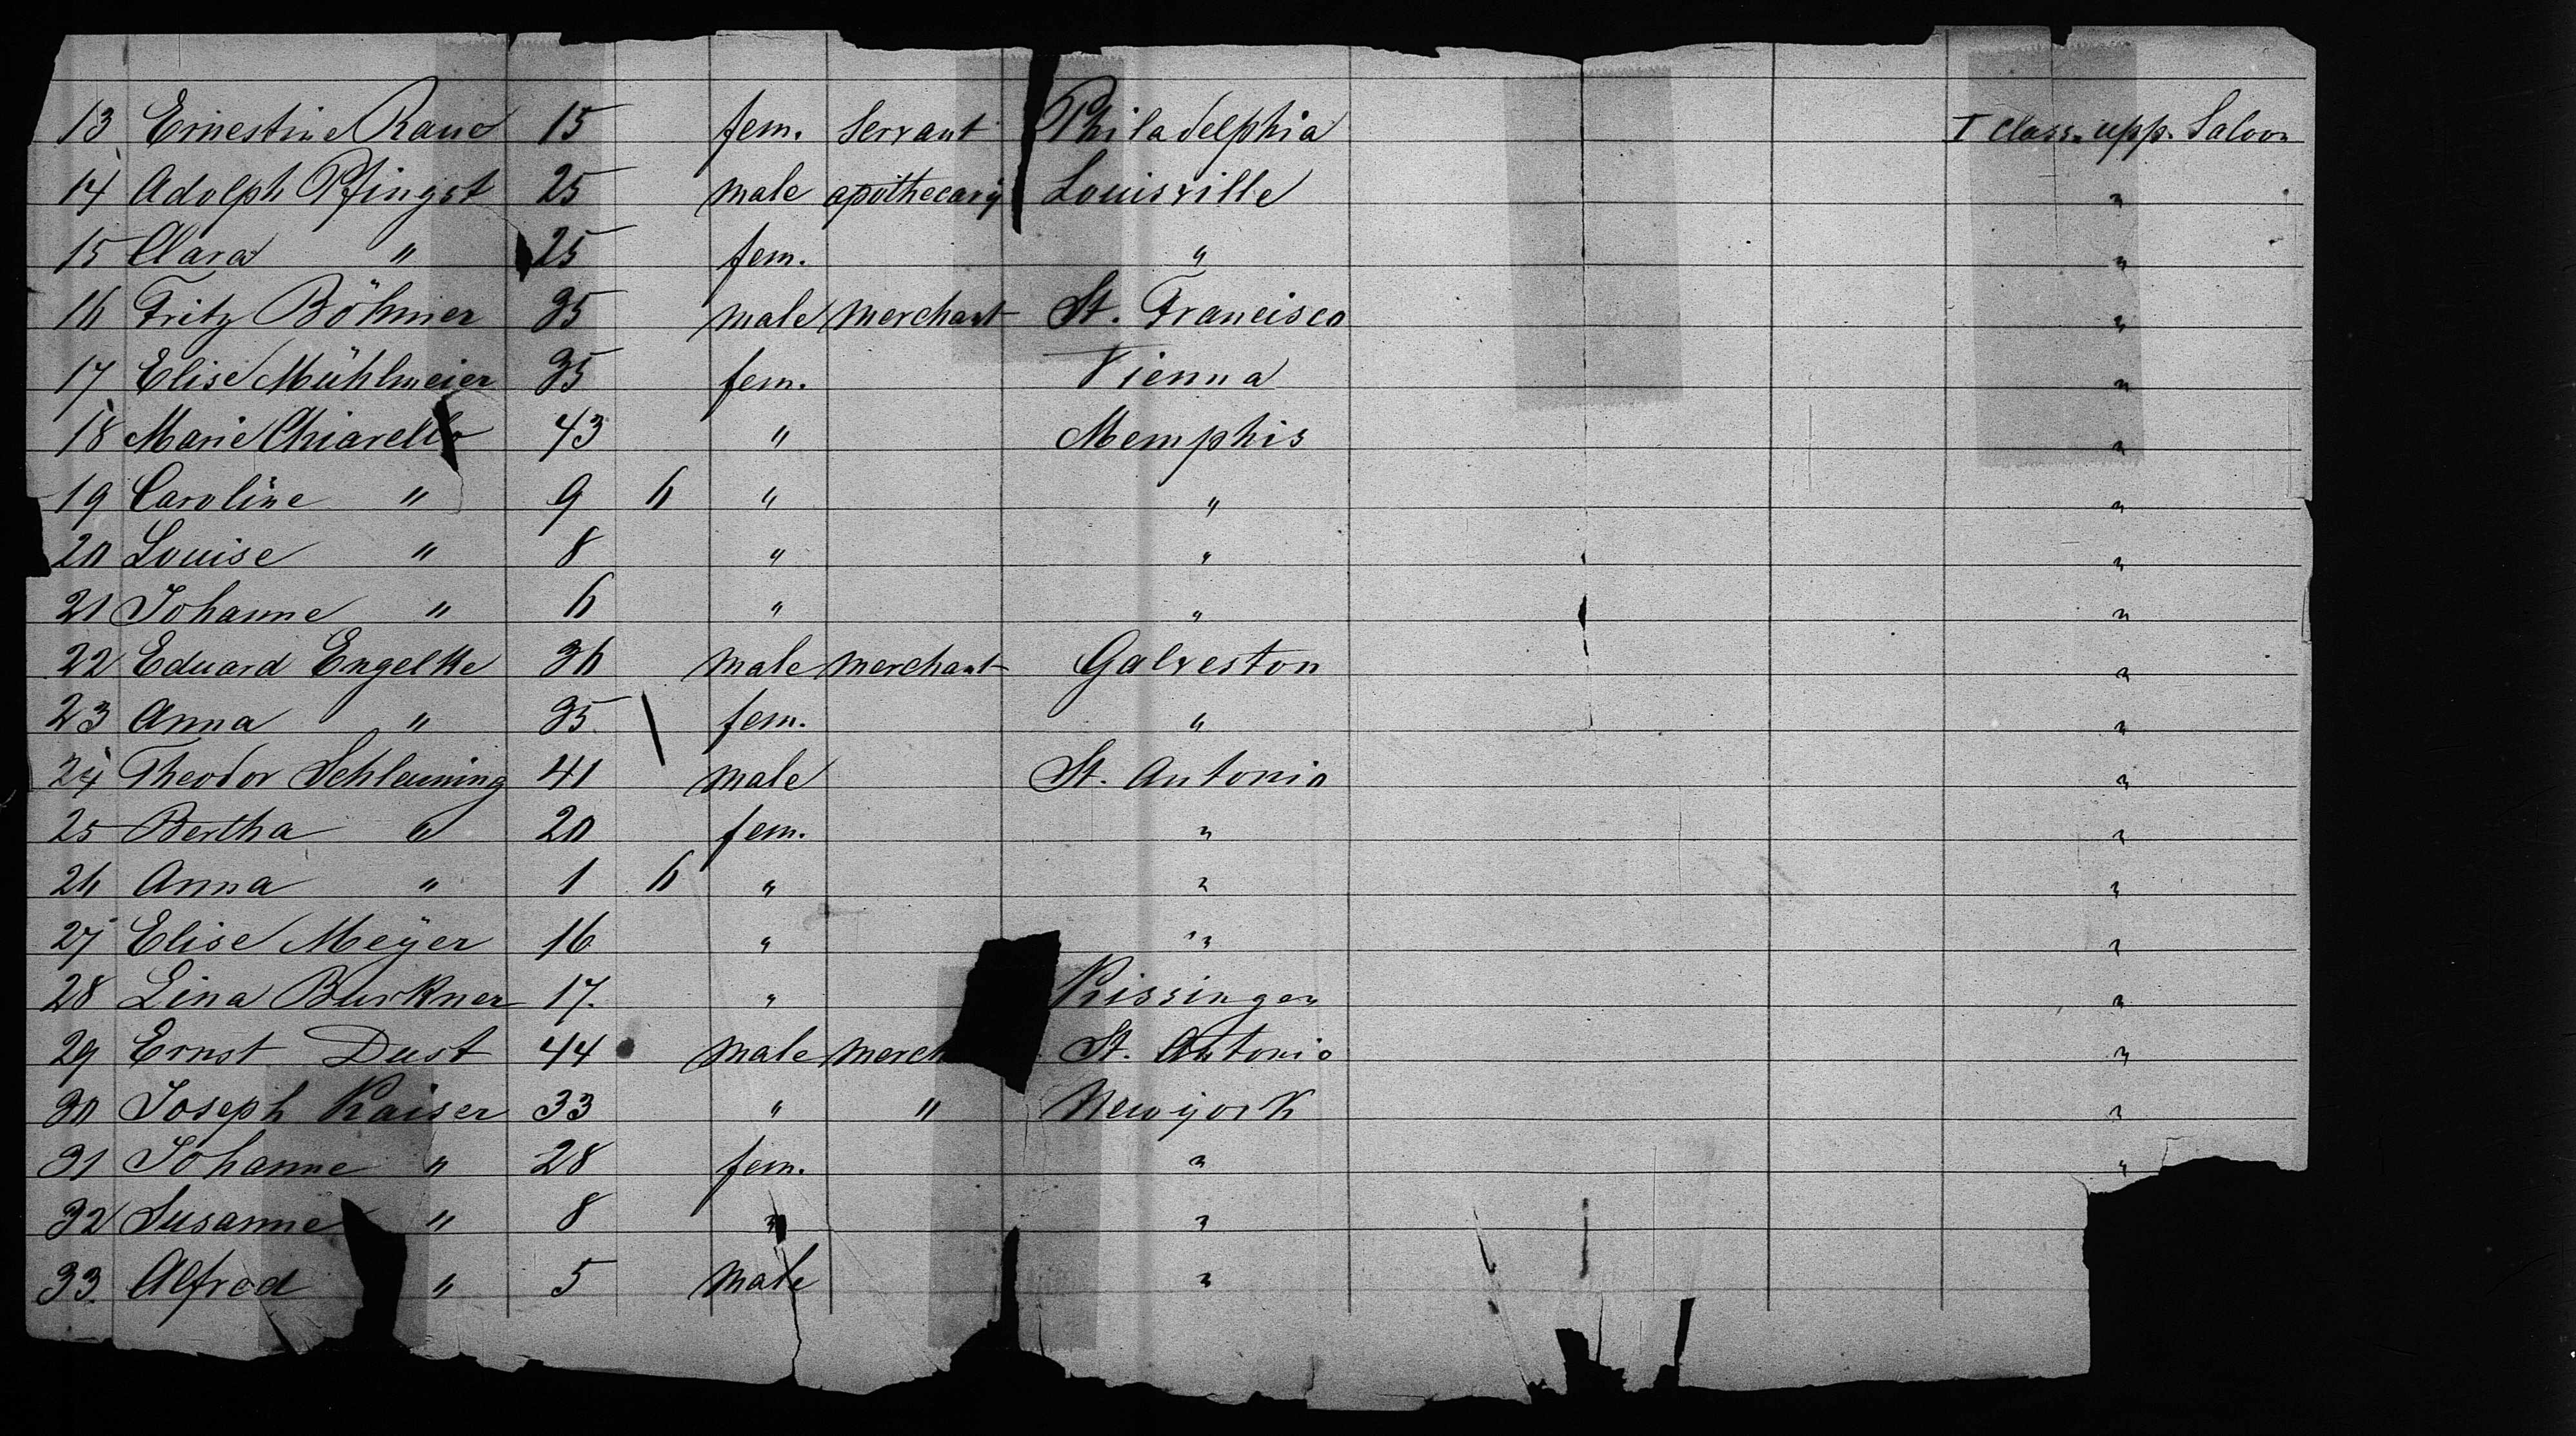 13 Ernestine Rau 15 fem. Servant Philadelphia I class. upp. Saloon
14 Adolph Pfingst 25 male apothecary Louisville "
15 Clara " 25 fem. " "
16 Fritz Böhmer 35 male merchant St. Francisco "
17 Elise Mühlmeier 35 fem. Vienna "
18 Marie Chiarello 43 " Memphis "
19 Caroline " 9 6 " " "
20 Louise " 8 " " "
21 Johanne " 6 " " "
22 Eduard Engelke 36 male merchant Galveston "
23 Anna " 35 fem. " "
24 Theodor Schleuning 41 male St. Antonio "
25 Bertha " 20 fem. " "
26 Anna " 1 6 " " "
27 Elise Meÿer 16 " " "
28 Lina Burkner 17. " Kissingen "
29 Ernst Dust 44 male merch St. Antonio "
30 Joseph Kaiser 33 " " Newyork "
31 Johanne " 28 fem. " "
32 Susanne " 8 " "
33 Alfred " 5 male "